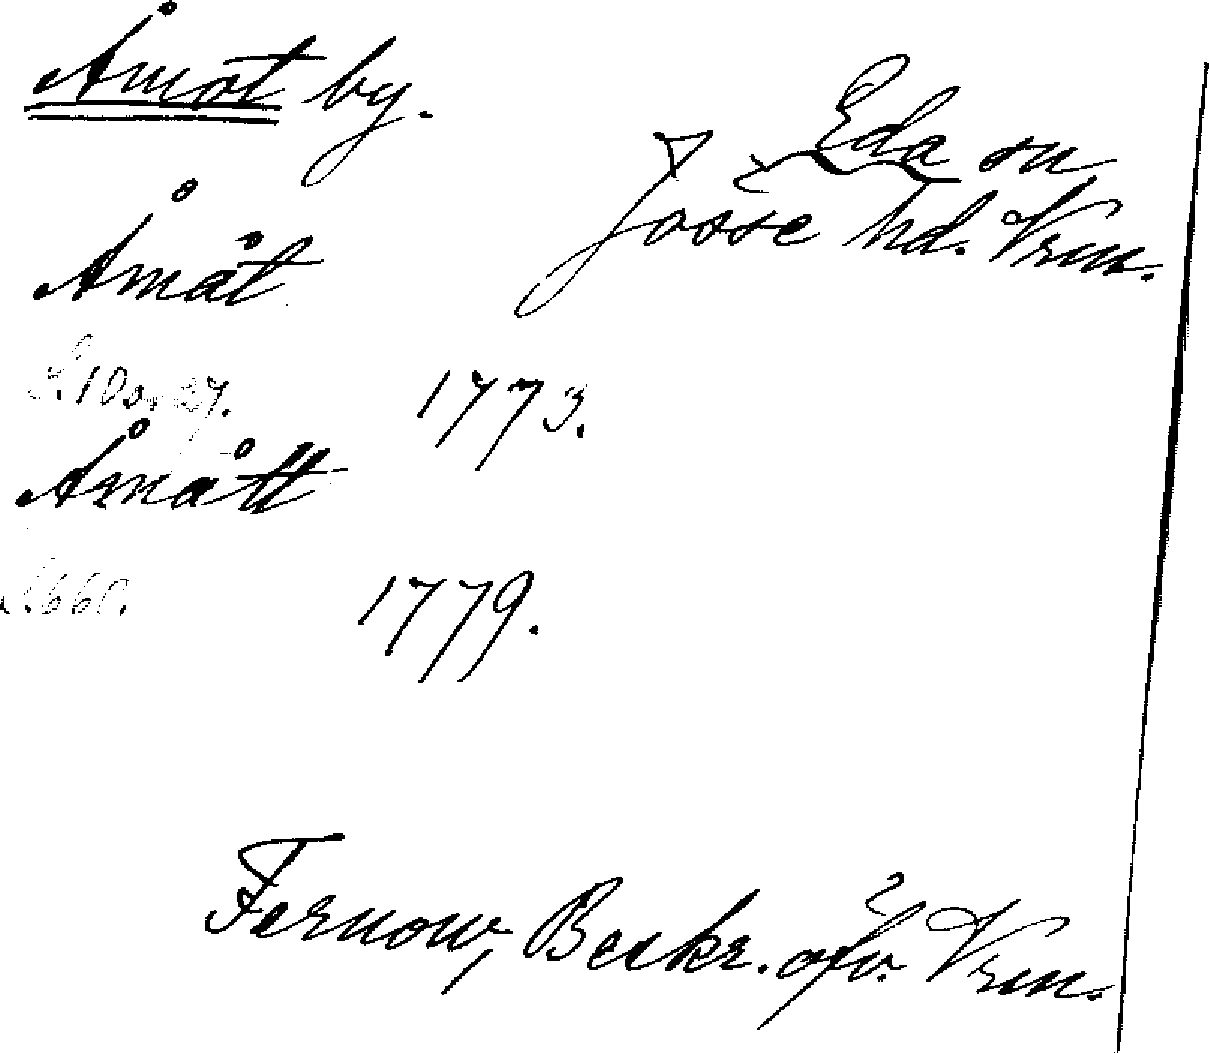 Åmot by.
Eda sn
Jösse hd. Vrm.
Åmåt
S. 10 o. 27. 1773.
Åmått
S. 660. 1779.
Fernow, Beskr. öfv. Vrm.